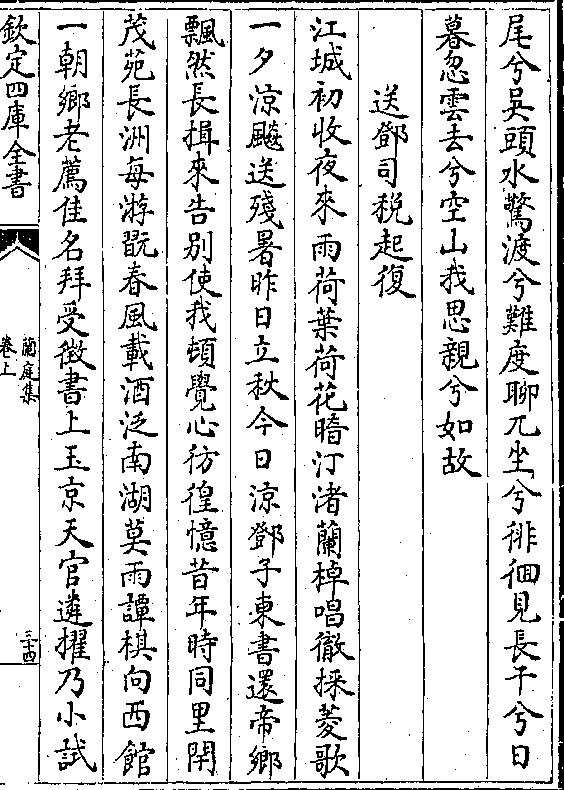 尾兮吳頭水驚渡兮難度聊兀坐兮徘徊見長干兮日
暮忽雲去兮空山我思親兮如故
送鄧司稅起復
江城初收夜來雨荷葉荷花暗汀渚蘭棹唱徹採菱歌
一夕涼飈送殘暑昨日立秋今日涼鄧子東書還帝鄉
飄然長揖來告别使我頓覺心彷徨憶昔年時同里閈
茂苑長洲每游翫春風載酒泛南湖莫雨譚棋向西館
一朝鄉老薦佳名拜受徵書上玉京天官遴擢乃小試
欽定四庫全書
蘭庭集
卷上
三十四